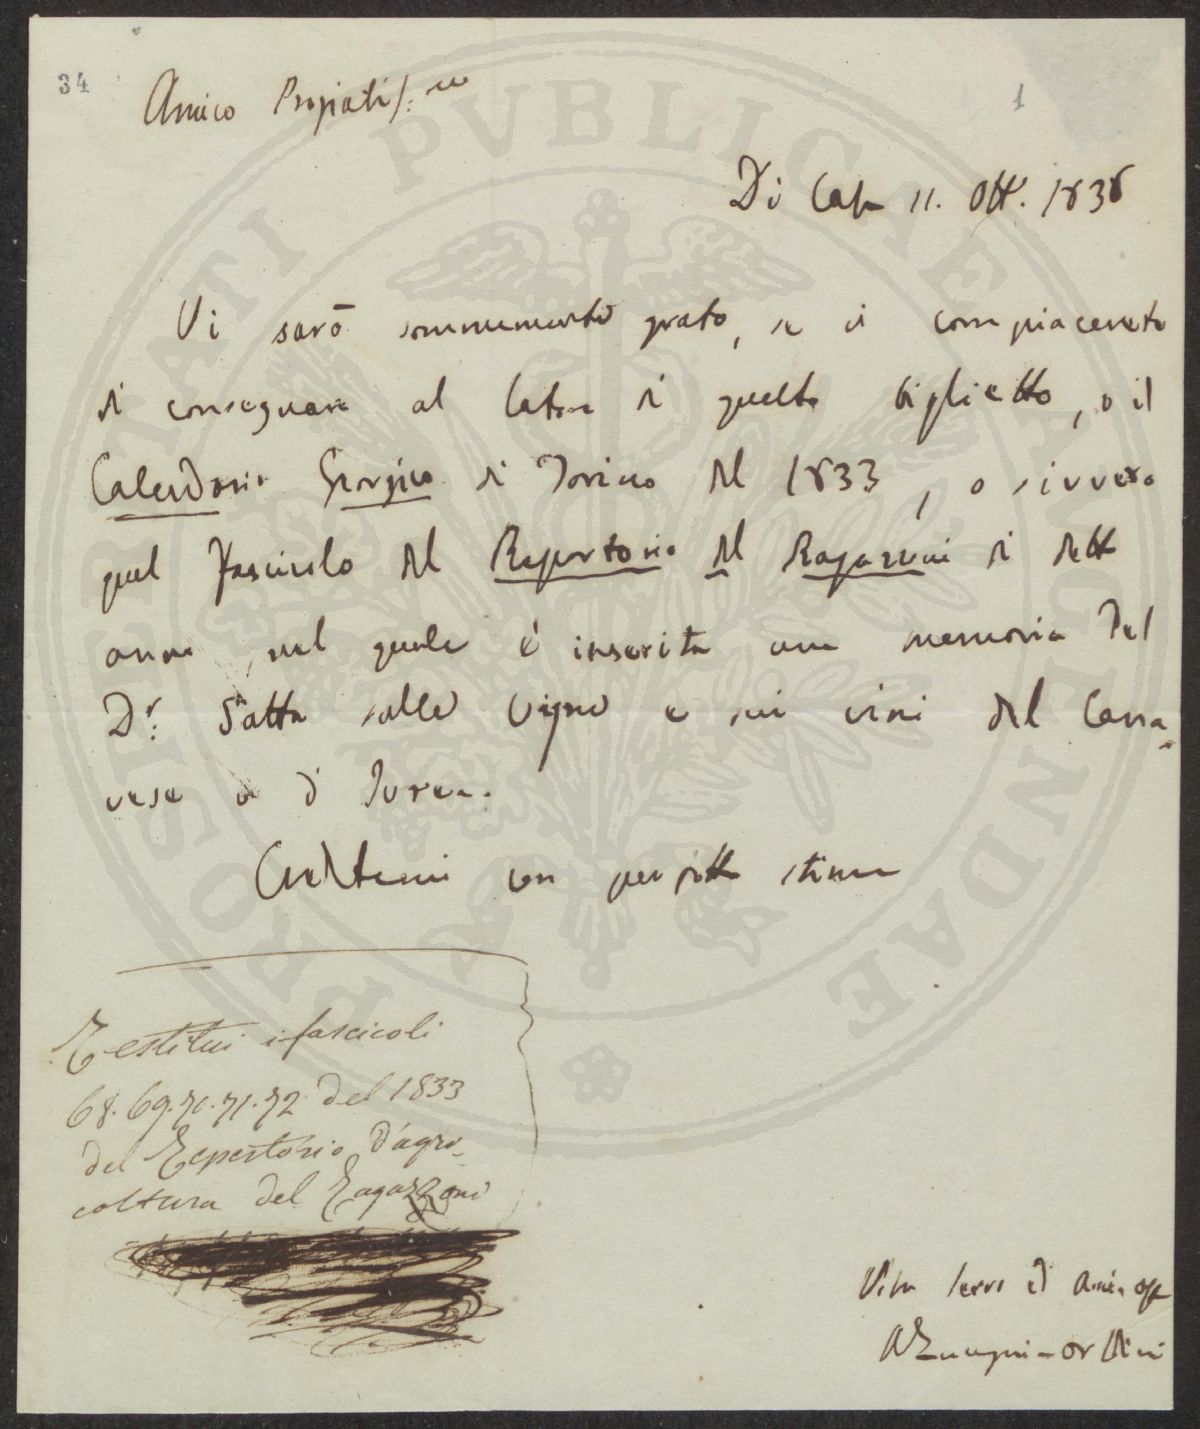 34
1
Amico Pregiatis:mo
Di Casa 11. Ott. 1838
Vi sarò sommamente grato, se vi compiacerete
di consegnare al latore di questo biglietto, o il
Calendario Georgico di Torino del 1833, o sivvero
quel fascicolo del Repertorio del Ragazzoni di detto
anno nel quale è inserita una memoria del
Dr. Gatta sulle vigne e sui vini del Cana-
vese e d'Ivrea.
Credetemi con perfetta stima
Restitui i fascicoli
68. 69. 70. 71. 72. del 1833
del Repertorio d'agri-
coltura del Ragazzoni
Vstro servo ed amico
AZuccagni-Orlandini
PROSPERITATI PUBLICAE AUGENDAE